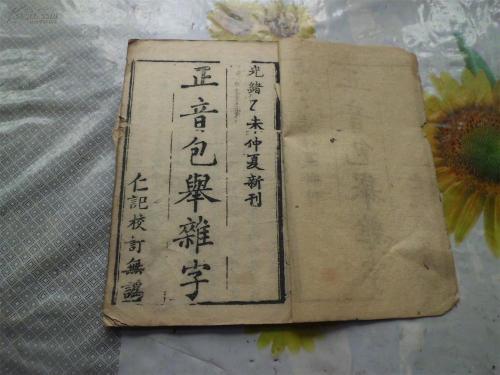 光緒乙未仲夏新刊
正音包舉雜字
仁記校訂無譌